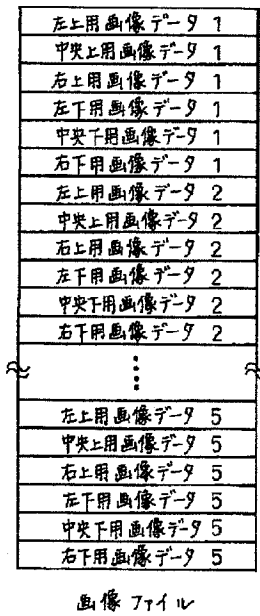 左上用画像データ 1
中央上用画像データ 1
右上用画像データ 1
左下用画像データ 1
中央下用画像データ 1
右下用画像データ 1
左上用画像データ 2
中央上用画像データ 2
右上用画像データ 2
左下用画像データ 2
中央下用画像データ 2
右下用画像データ 2
左上用画像データ 5
中央上用画像データ 5
右上用画像データ 5
左下用画像データ 5
中央下用画像データ 5
右下用画像データ 5
画像ファイル